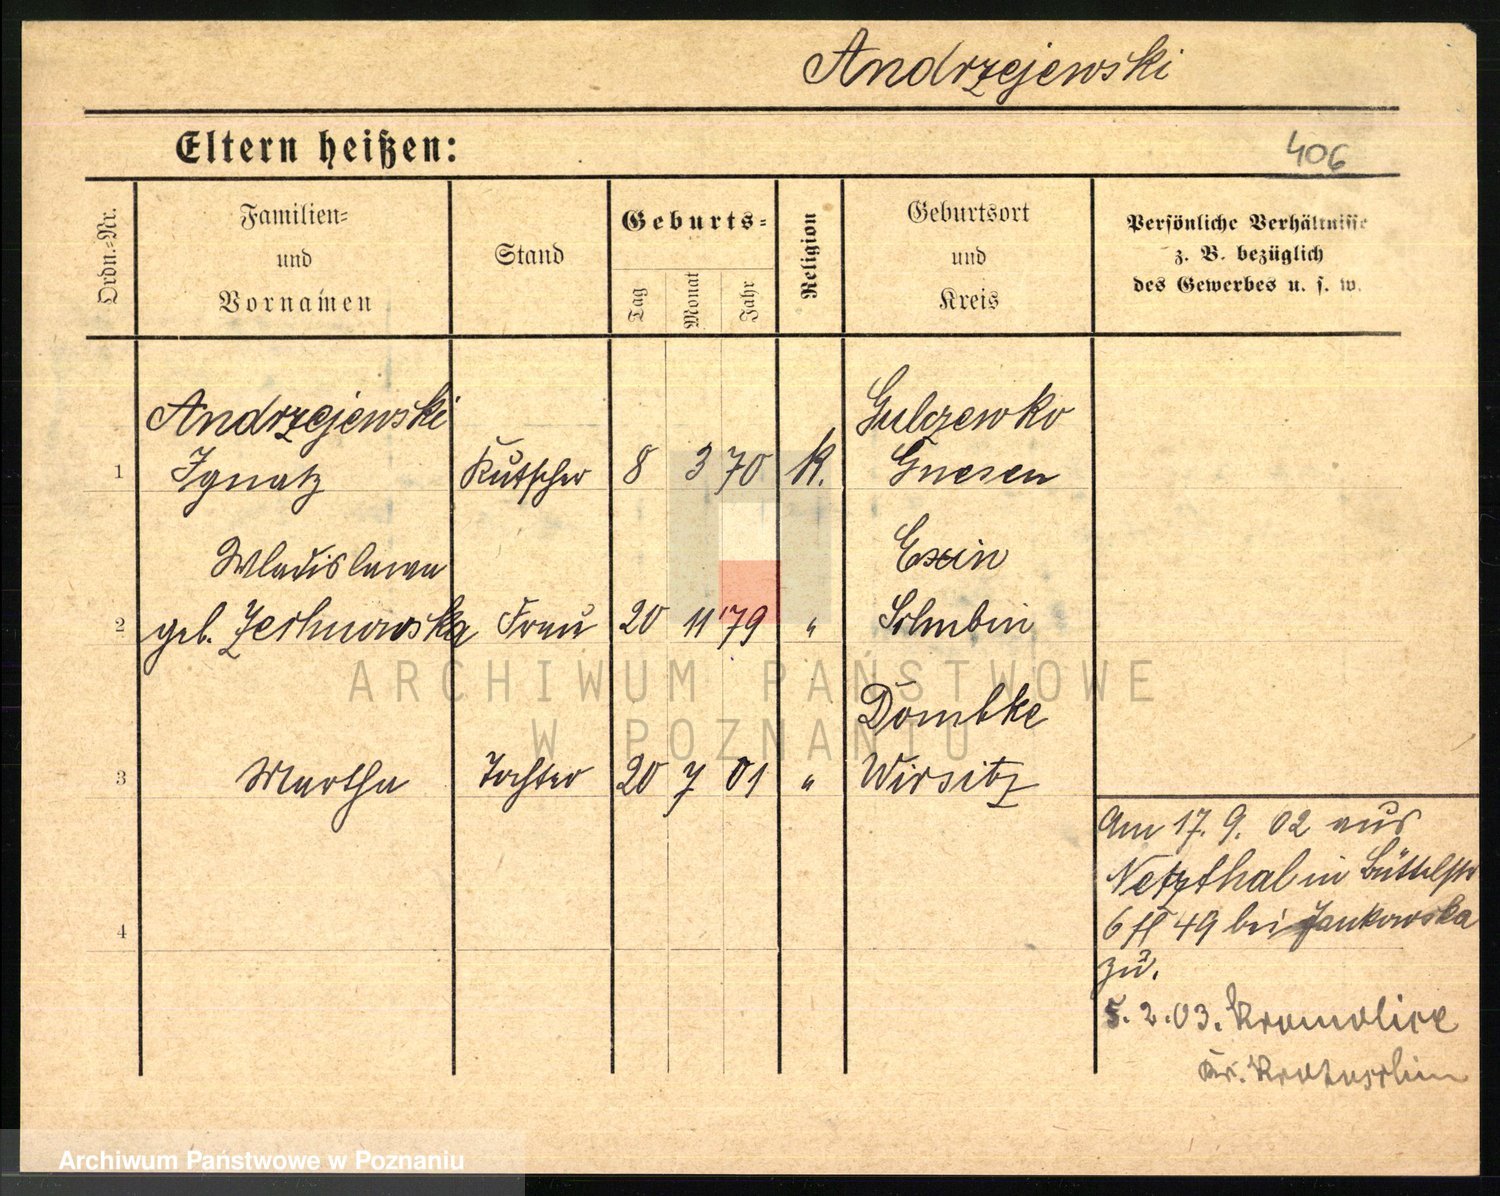 Andrzejewski
Eltern heißen:
406
Ordn.=Nr.
Familien=
und
Vornamen
Stand
Geburts=
Tag
Monat
Jahr
Religion
Geburtsort
und
Kreis
Persönliche Verhältnisse
z. B. bezüglich
des Gewerbes u. s. w.
Andrzejewski Gulczewko
1 Ignatz Kutscher 8 3 70 K. Gnesen
Wladislawa Exin
2 geb. Frau 20 11 79 " Schubin
Dombke
3 Martha Tochter 20 7 01 " Wirsitz
4
Am 17. 9. 02 aus
Netzthal in Büttelstr
6 II 49 bei Jankowska
zu.
5. 2. 03. Kromolice
Kr. Krotoschin
ARCHIWUM PAŃSTWOWE
W POZNANIU
Archiwum Państwowe w Poznaniu